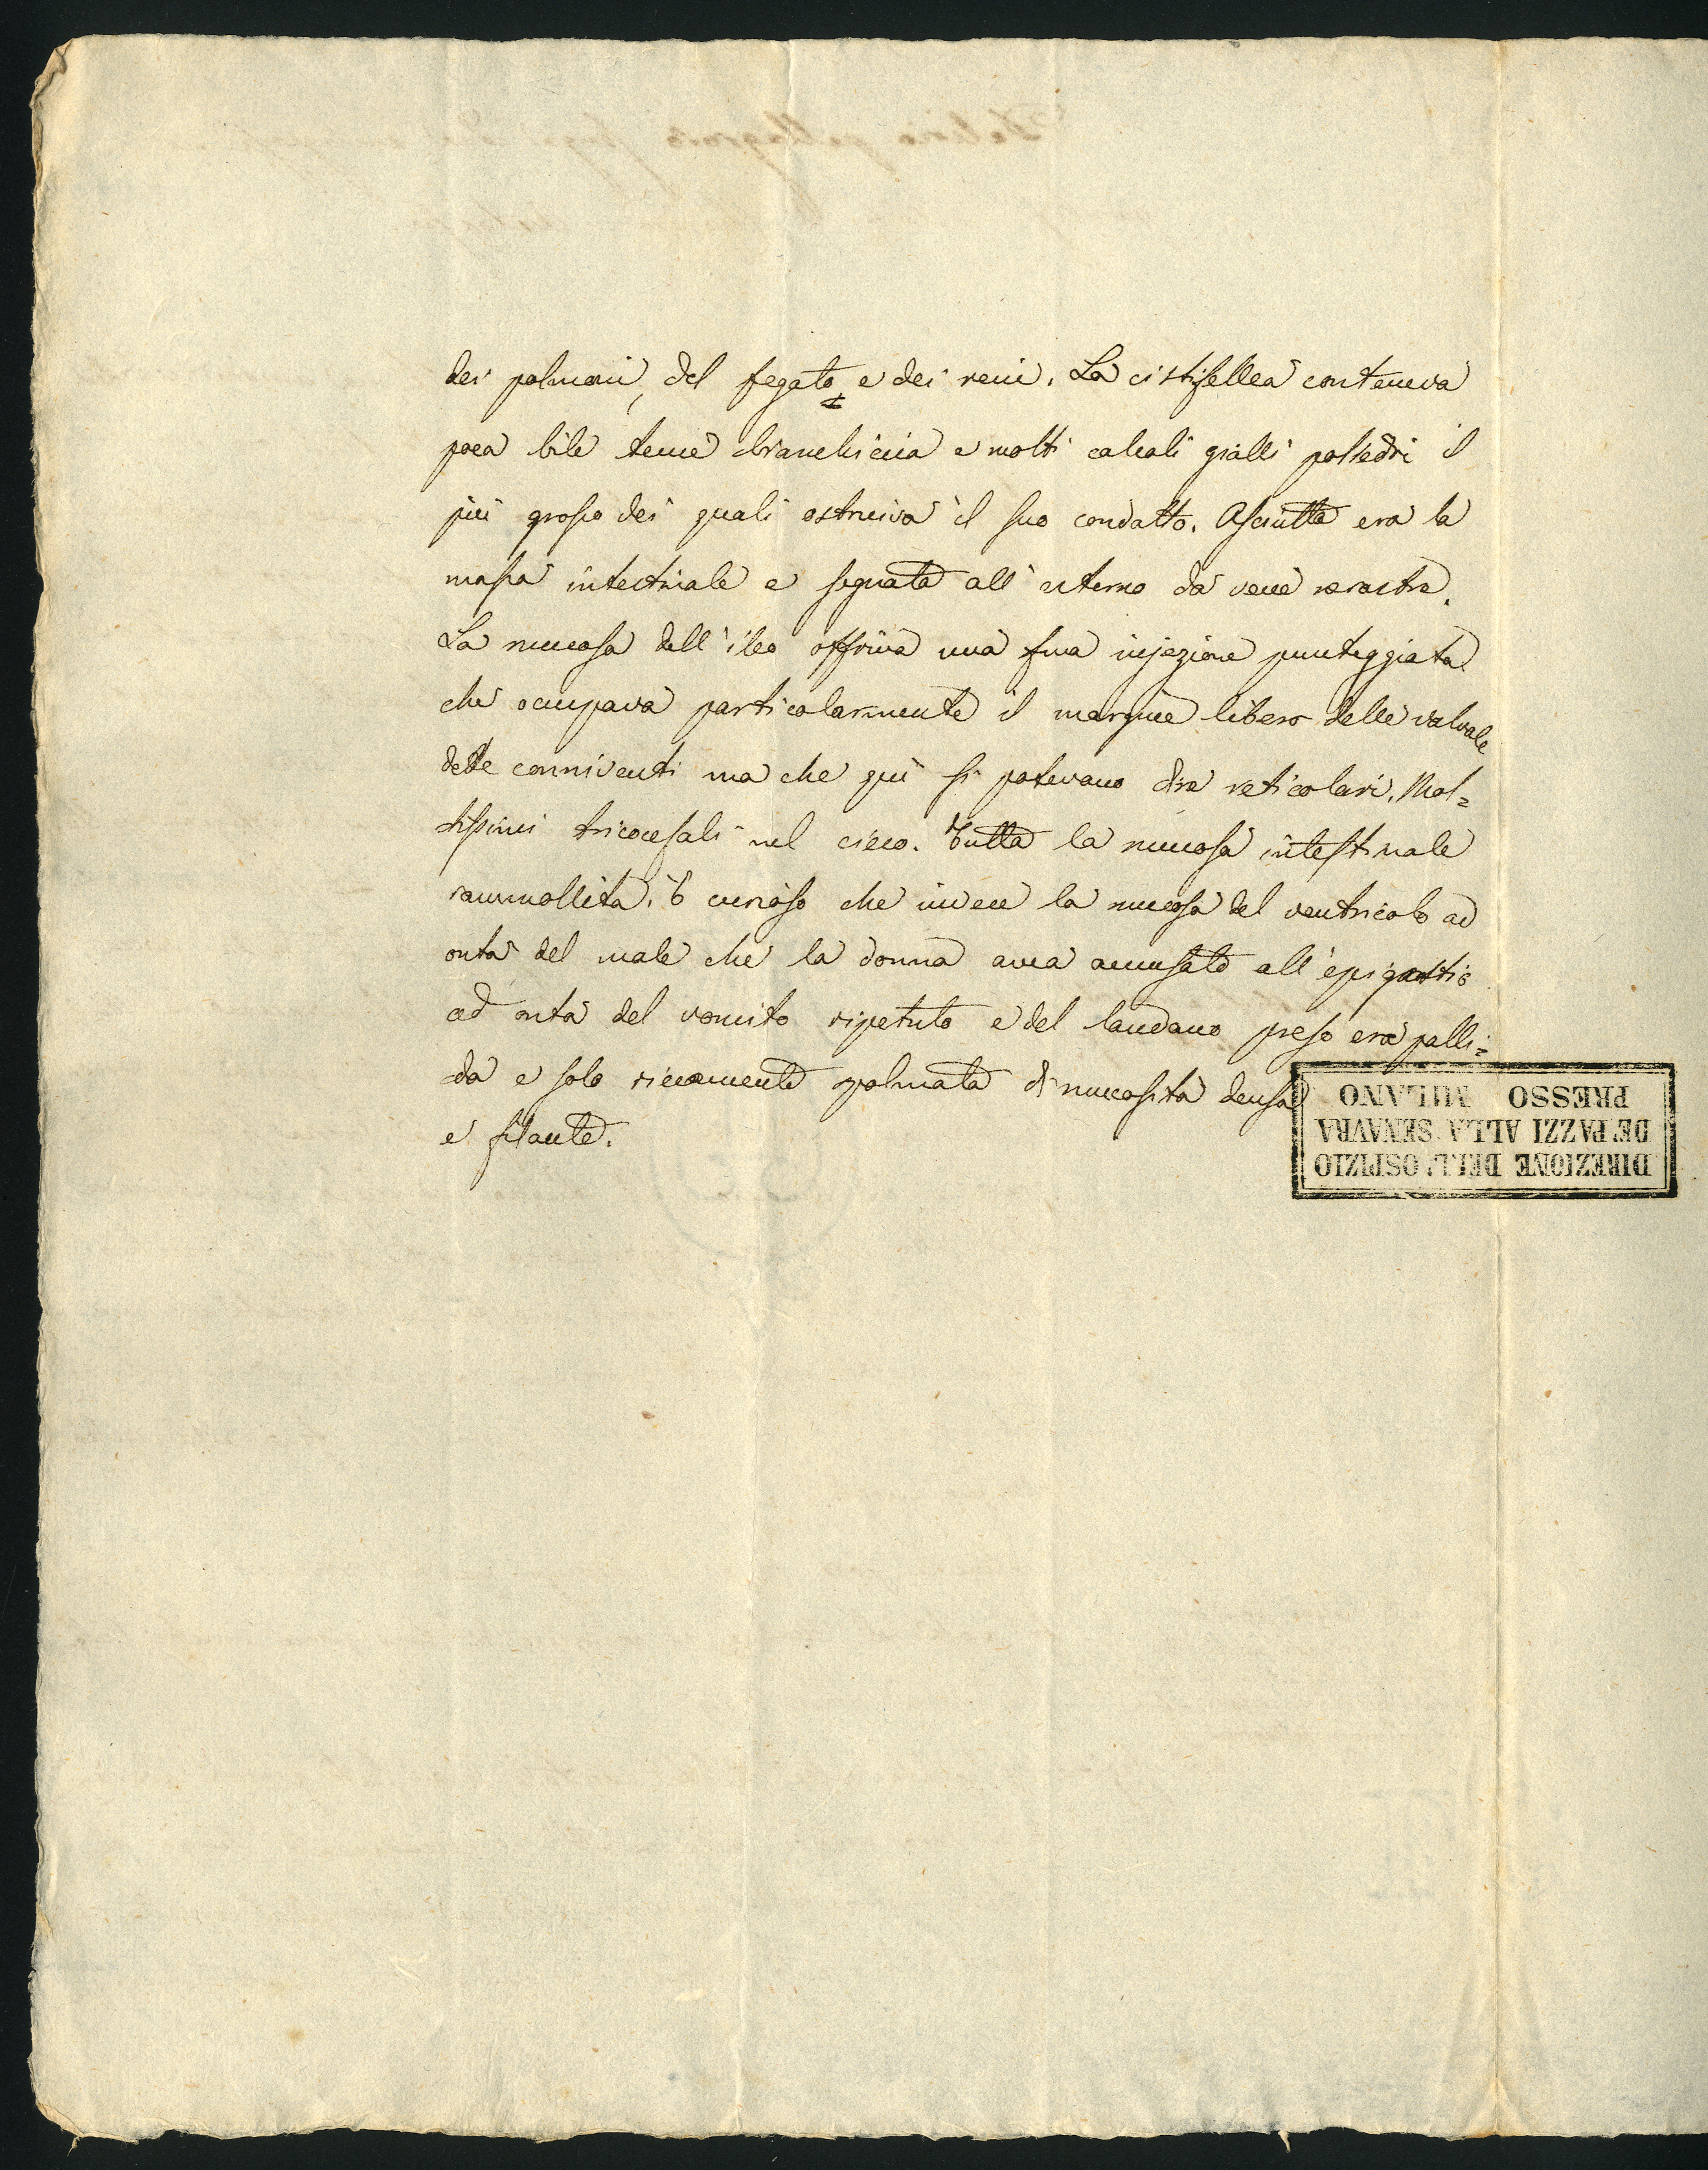 dei polmoni, del fegato e dei reni. La cistifellea conteneva
poca bile tenue bianchiccia e molti calcoli gialli poliedri il
più grosso dei quali ostruiva il suo condotto. Asciutta era la
massa intestinale e segnata all' esterno da vene nerastre.
La mucosa dell' ileo offriva una fina injezione punteggiata
che occupava particolarmente il margine libero delle valvole
dette conniventi ma che qui si potevano dire reticolari. Mol=
tissimi tricocefali nel cieco. Tutta la mucosa intestinale
rammollita. È curioso che invece la mucosa del ventricolo ad
onta del male che la donna avea accusato all' epigastrio
ad onta del vomito ripetuto e del laudano preso era palli=
da e solo riccamente spalmata di mucosità densa
e filante.
DIREZIONE DELL' OSPIZIO
DE' PAZZI ALLA SENAVRA
PRESSO MILANO